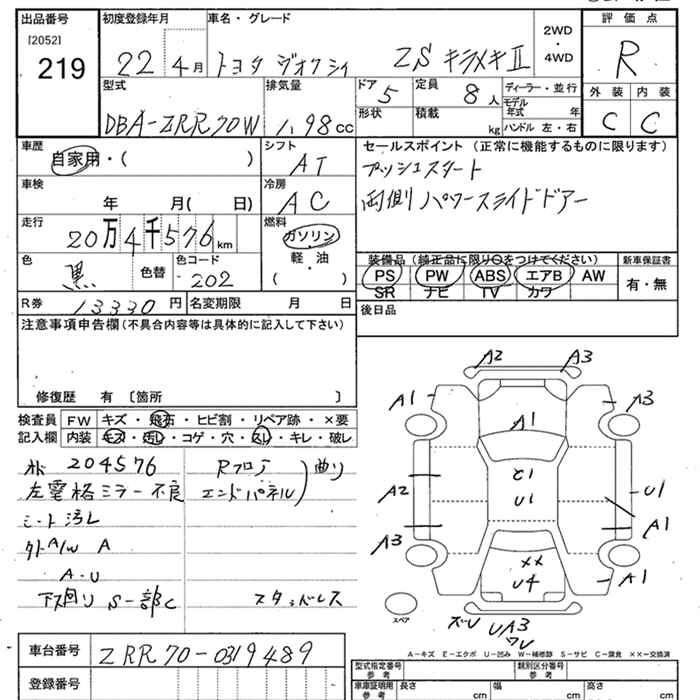 出品番号
[2052]
219
初度登録年月
22 4月
車名・グレード
トヨタ ZS キラメキⅡ
2WD
・
4WD
評価点
R
型式
DBA-ZRR70W
排気量
1.98cc
ドア
5
形状
定員
8人
積載
kg
ディーラー・並行
モデル年式 年
ハンドル 左・右
外装 内装
C C
車歴
自家用・( )
シフト
AT
セールスポイント(正常に機能するものに限ります)
プッシュスタート
両側パワースライドドアー
車検
年 月( 日)
冷房
AC
走行
20万4千576km
燃料
ガソリン
軽・油
( )
色
黒
色替
色コード
202
装備品(純正品に限り○をつけてください)
PS PW ABS エアB AW
SR ナビ TV カワ
新車保証書
有・無
R券 13330円
名変期限 月 日
後日品
注意事項申告欄(不具合内容等は具体的に記入して下さい)
修復歴 有〔箇所 〕
検査員記入欄
FW キズ・飛石・ヒビ割・リペア跡・×要
内装 キズ・汚れ・コゲ・穴・スレ・キレ・破レ
204576
左電格ミラー不良
シート汚レ
外A/W A
A・U
下廻り S一部C
Rフロア
エンドパネル
曲り
スタッドレス
A2
A3
A1
A3
A1
U1
A2
U1
A1
A3
A1
××
U4
スペア
UA3
A-キズ E-エクボ U-凹み W-補修跡 S-サビ C-腐食 ××-交換済
車台番号
ZRR70-0319489
登録番号
型式指定番号
参考
類別区分番号
参考
車庫証明用
参考
長さ cm
幅 cm
高さ cm